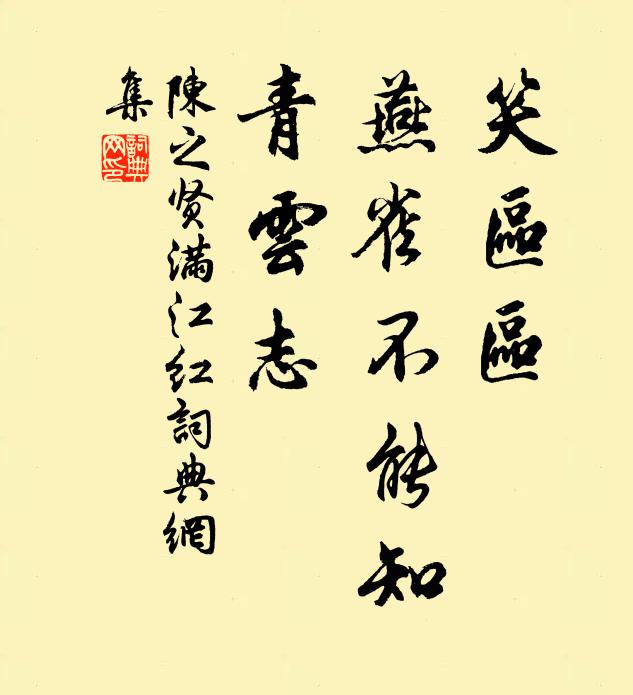 笑區區
燕雀不能知
青雲志
陳之贤滿江红詞典網
集
詞典
网印